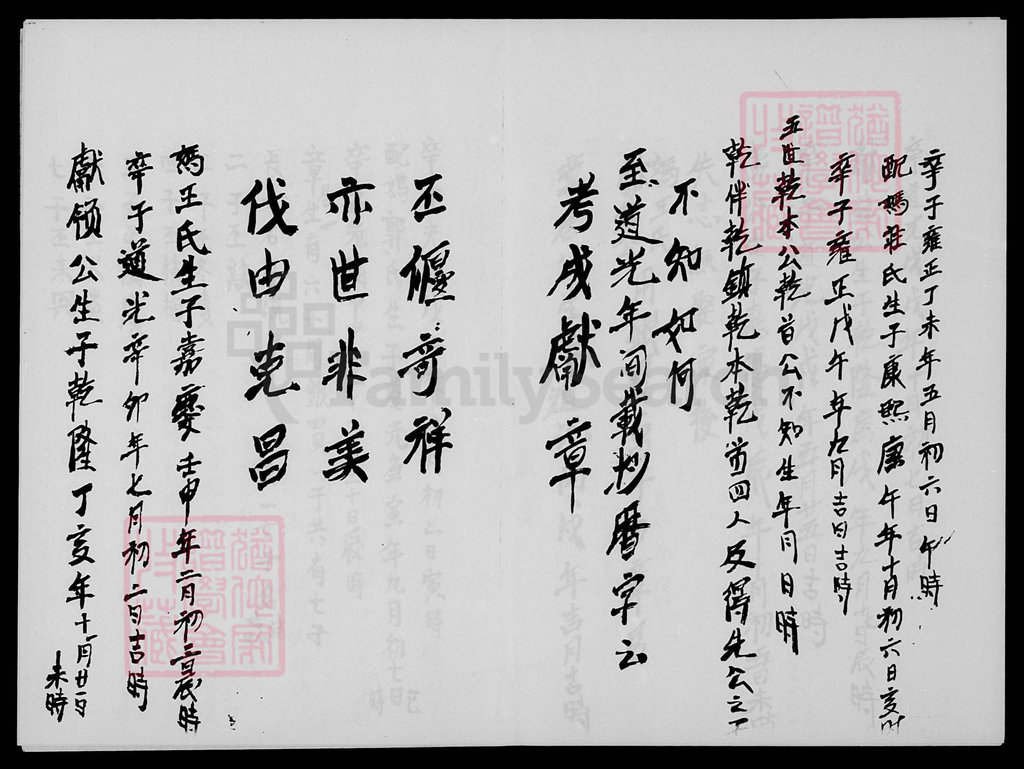 卒于雍正丁未年五月初六日午時
配媽莊氏生于康熙庚午年十月初六日亥時
卒于雍正戊午年九月吉日吉時
五世乾本公乾首公不知生年月日時
乾伴乾鎮乾本乾首四人及得先公之
不知如何
至道光年間載抄曆字云
考成獻章
丕偃奇祥
亦世非美
伐由克昌
媽王氏生于嘉慶壬申年二月初三日辰時
卒于道光辛卯年七月初二日吉時
獻领公生于乾隆丁亥年十一月廿一日
未時
FamilySearch